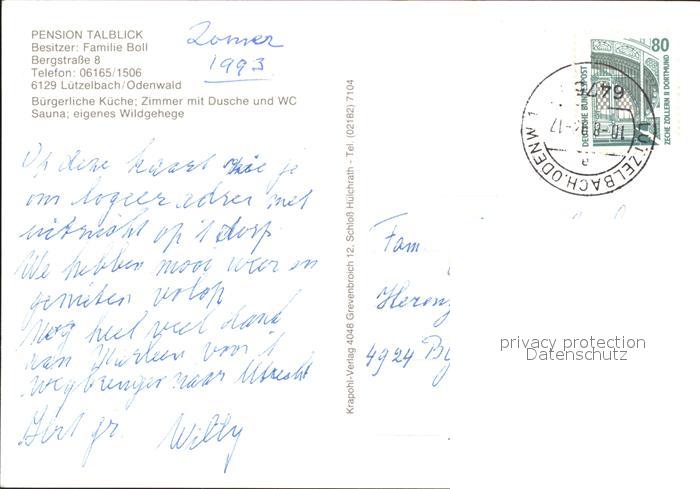 PENSION TALBLICK
Besitzer: Familie Boll
Bergstraße 8
Telefon: 06165/1506
6129 Lützelbach/Odenwald
Bürgerliche Küche; Zimmer mit Dusche und WC
Sauna; eigenes Wildgehege
Zomer
1993
Op deze kaart zie je
ons logeer adres met
uitzicht op 't dorp.
We hebben mooi weer en
genieten volop
Nog heel veel dank
aan Marleen voor 't
wegbrengen naar Utrecht
Hart. gr. Willy
Krapohl-Verlag 4048 Grevenbroich 12, Schloß Hülchrath - Tel. (02182) 7104
80
DEUTSCHE BUNDESPOST
ZECHE ZOLLERN II DORTMUND
LÜTZELBACH, ODENW 1
a
Fam
4924
privacy protection
Datenschutz